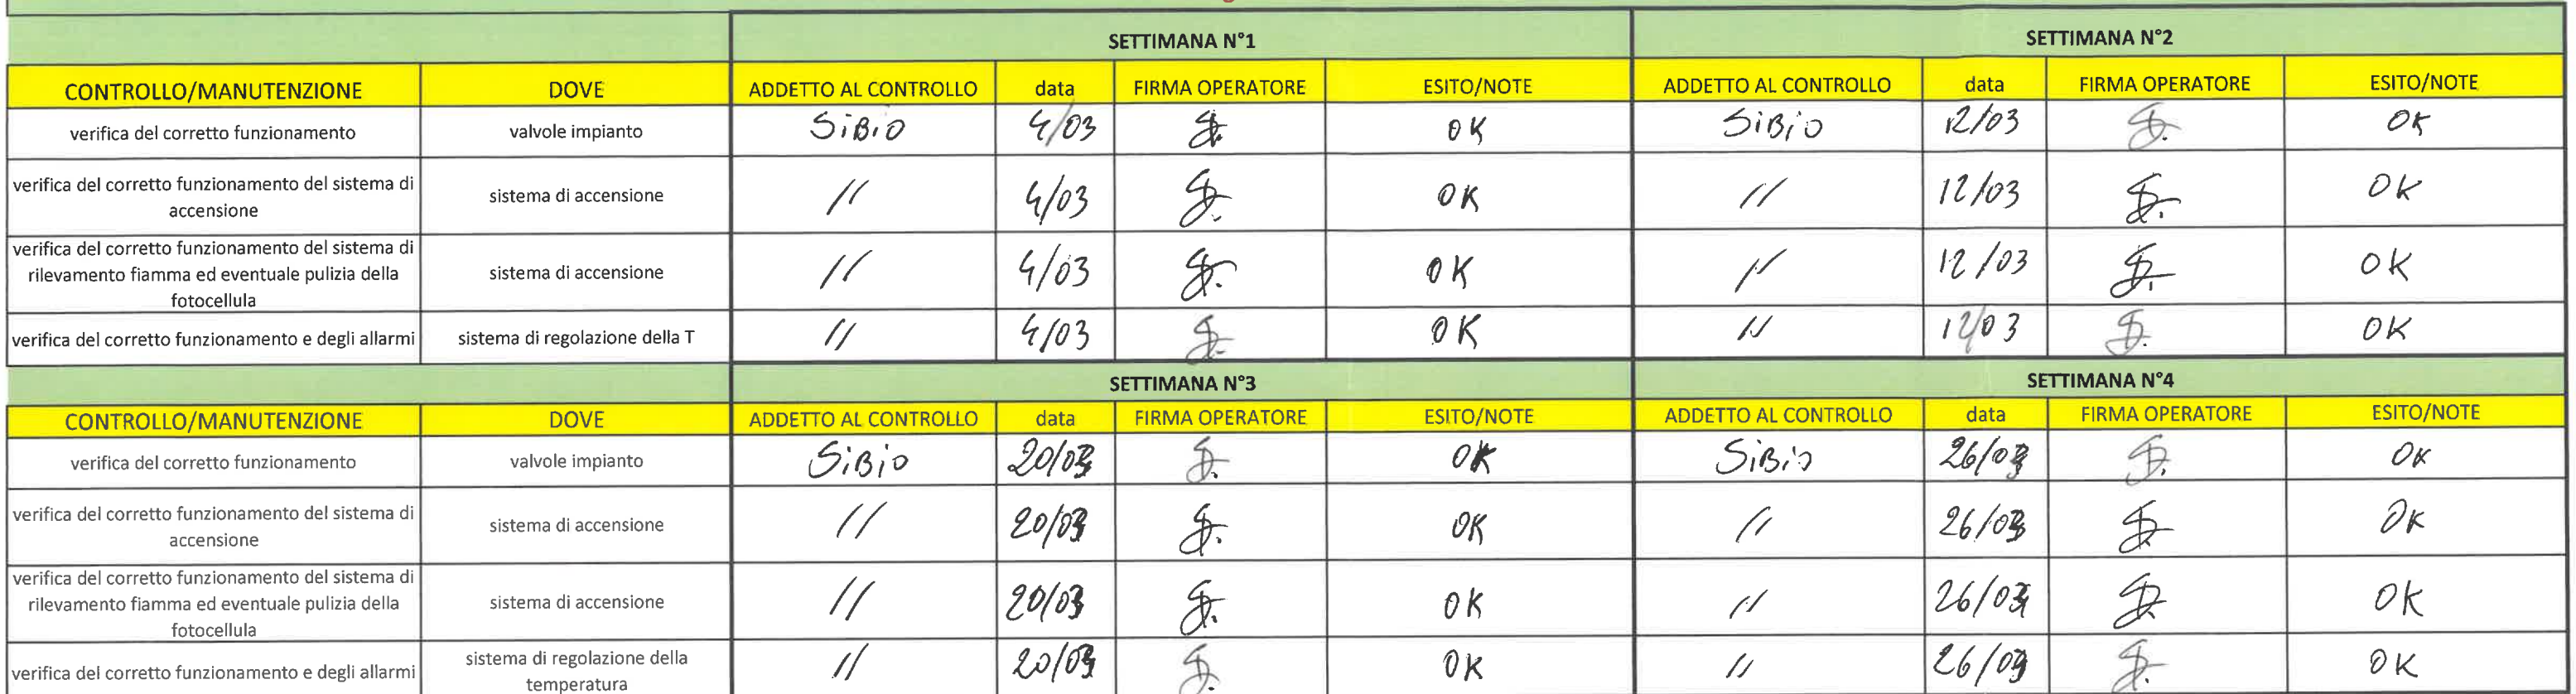 SETTIMANA N°1 SETTIMANA N°2
CONTROLLO/MANUTENZIONE DOVE ADDETTO AL CONTROLLO data FIRMA OPERATORE ESITO/NOTE ADDETTO AL CONTROLLO data FIRMA OPERATORE ESITO/NOTE
verifica del corretto funzionamento valvole impianto SiBiO 4/03 OK SiBiO 12/03 OK
verifica del corretto funzionamento del sistema di
accensione sistema di accensione // 4/03 OK // 12/03 OK
verifica del corretto funzionamento del sistema di
rilevamento fiamma ed eventuale pulizia della
fotocellula sistema di accensione // 4/03 OK // 12/03 OK
verifica del corretto funzionamento e degli allarmi sistema di regolazione della T // 4/03 OK // 12/03 OK
SETTIMANA N°3 SETTIMANA N°4
CONTROLLO/MANUTENZIONE DOVE ADDETTO AL CONTROLLO data FIRMA OPERATORE ESITO/NOTE ADDETTO AL CONTROLLO data FIRMA OPERATORE ESITO/NOTE
verifica del corretto funzionamento valvole impianto SiBiO 20/03 OK SiBiO 26/03 OK
verifica del corretto funzionamento del sistema di
accensione sistema di accensione // 20/03 OK // 26/03 OK
verifica del corretto funzionamento del sistema di
rilevamento fiamma ed eventuale pulizia della
fotocellula sistema di accensione // 20/03 OK // 26/03 OK
verifica del corretto funzionamento e degli allarmi sistema di regolazione della
temperatura // 20/03 OK // 26/03 OK